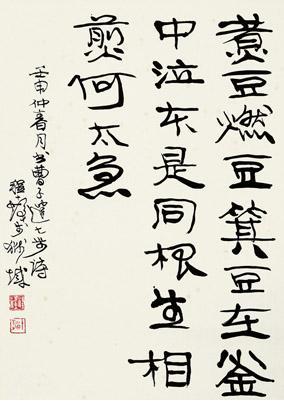 煮豆燃豆箕豆在釜
中泣本是同根生相
煎何太急
壬申仲春月书曹子建七步诗